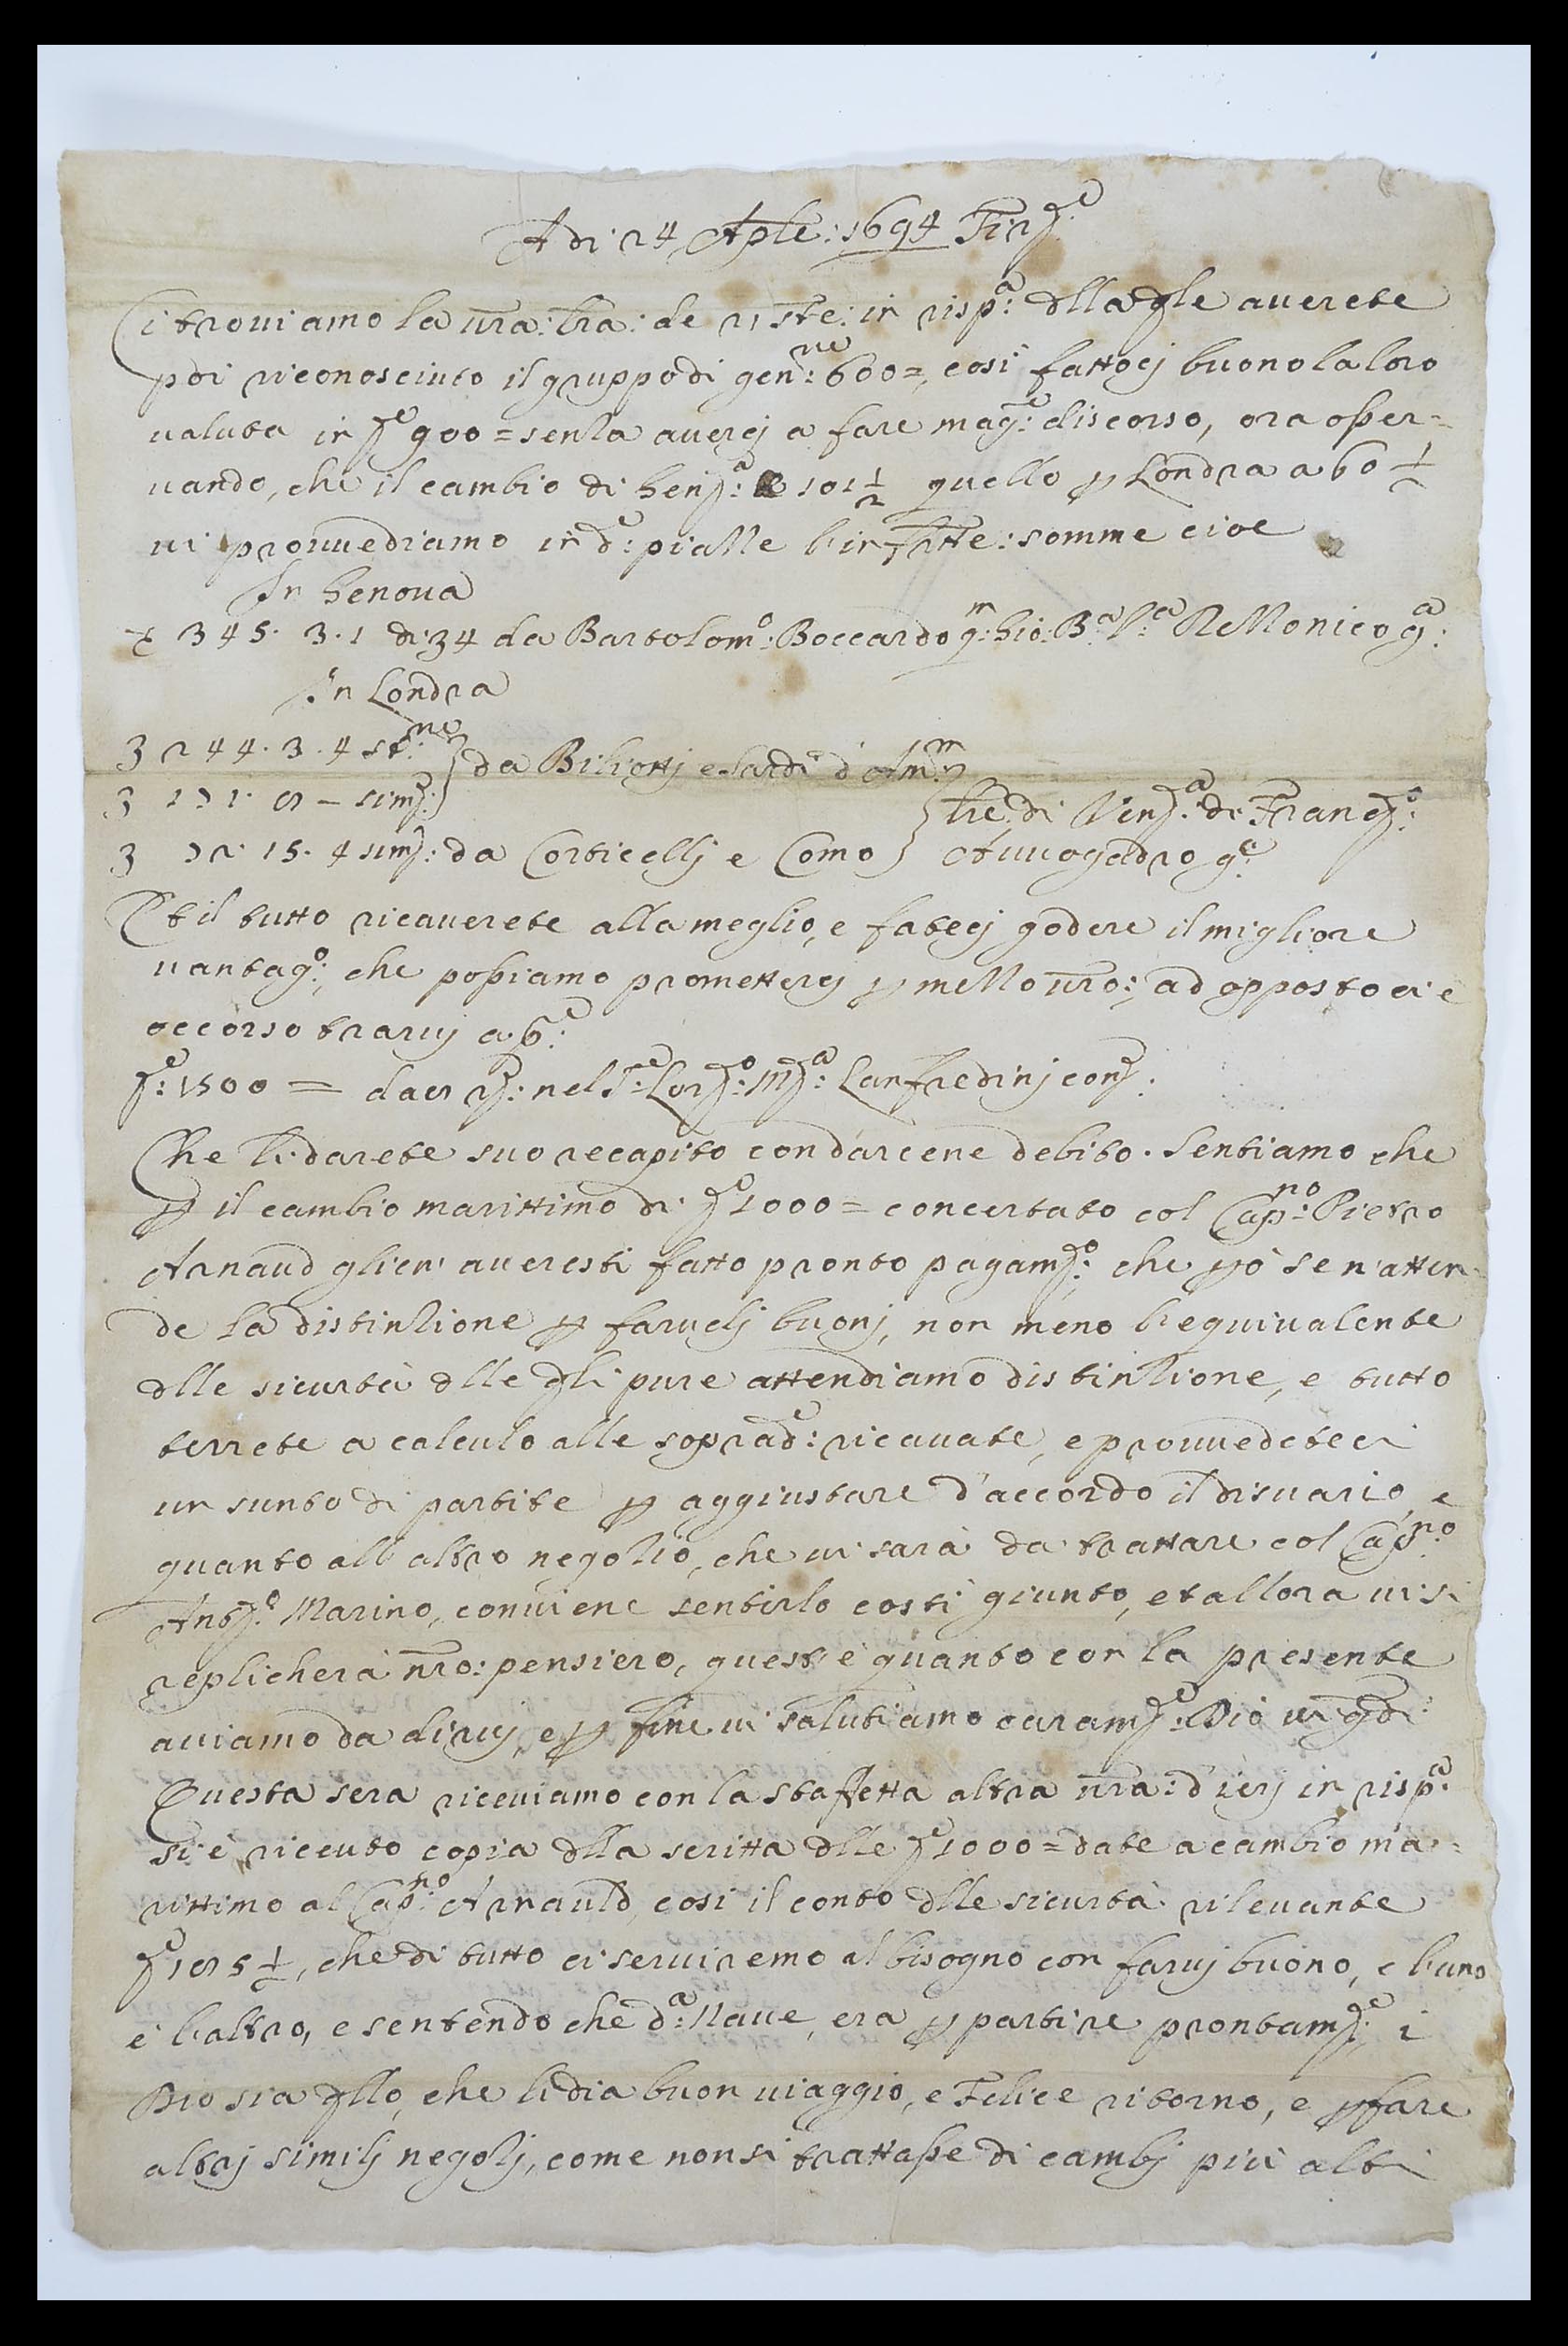 A di 24 Aple: 1694 Firze
Ci troviamo la vra: lra: de 21 ste: in rispa: dlla qle averete
pdi riconosciuto il gruppo di genne: 600=, così fattocj buono la loro
valuta in pe 900= senza avercj a fare mage: discorso, ora osser=
vando, che il cambio di Genza: e 101 1/2 quello p Londra a 60 1/2
vi provvediamo in de: pialle l'infrtte: somme cioe
In Genova
345. 3. 1 di 34 da Bartolomo: Boccardo qm: Gio: Ba
In Londra
3 244. 3. 4 stne:
3 131. 8 – simj:
da Biliottj e Sardi d'Amm:
3 32. 15. 4 simj: da Corticellj e Como
lre: di Venza: di Franco:
Avvogadro ga
Et il tutto ricaverete alla meglio, e fatecj godere il migliore
vantago:, che possiamo prometterej p mezzo vro:, ad opposto ci è
occorso trarvj
pe: 1500 = da 8 nel Se: Lorzo: Ma: Lanfredinj conj:
Che li darete suo recapito con darcene debito. Sentiamo che
p il cambio marittimo di pe 1000= concertato col Capno: Pietro
Arnaud glien' averesti fatto pronto pagamto: che pò se n'atten=
de la distinzione p farvelj buonj, non meno l'equivalente
dlle sicurtà dlle qli pure attendiamo distinzione, e tutto
terrete a calculo alle soprade: ricavate, e provvedeteci
un sunto di partite p aggiustare d'accordo il disvario, e
quanto all'altro negozio, che vi sarà da trattare col Capno:
Anto: Marino, conviene sentirlo costì giunto, et allora vi si
replicherà nro: pensiero, quest'è quanto con la presente
aviamo da dirvj, e p fine vi salutiamo caramte: Dio vi gdi:
Questa sera riceviamo con la staffetta altra vra: d'ierj in rispa:
si è riceuto copia dlla scritta dlle pe 1000= date a cambio ma=
rittimo al Capno: Arnauld, così il conto dlle sicurtà rilevante
pe 185 1/2, che di tutto ci serviremo al bisogno con farvj buono, e l'uno
e l'altro, e sentendo che da: Nave, era p partire prontamte: i
Dio sia qllo, che li dia buon viaggio, e Felice ritorno, e p fare
altrj similj negozj, come non si trattasse di cambj più alti